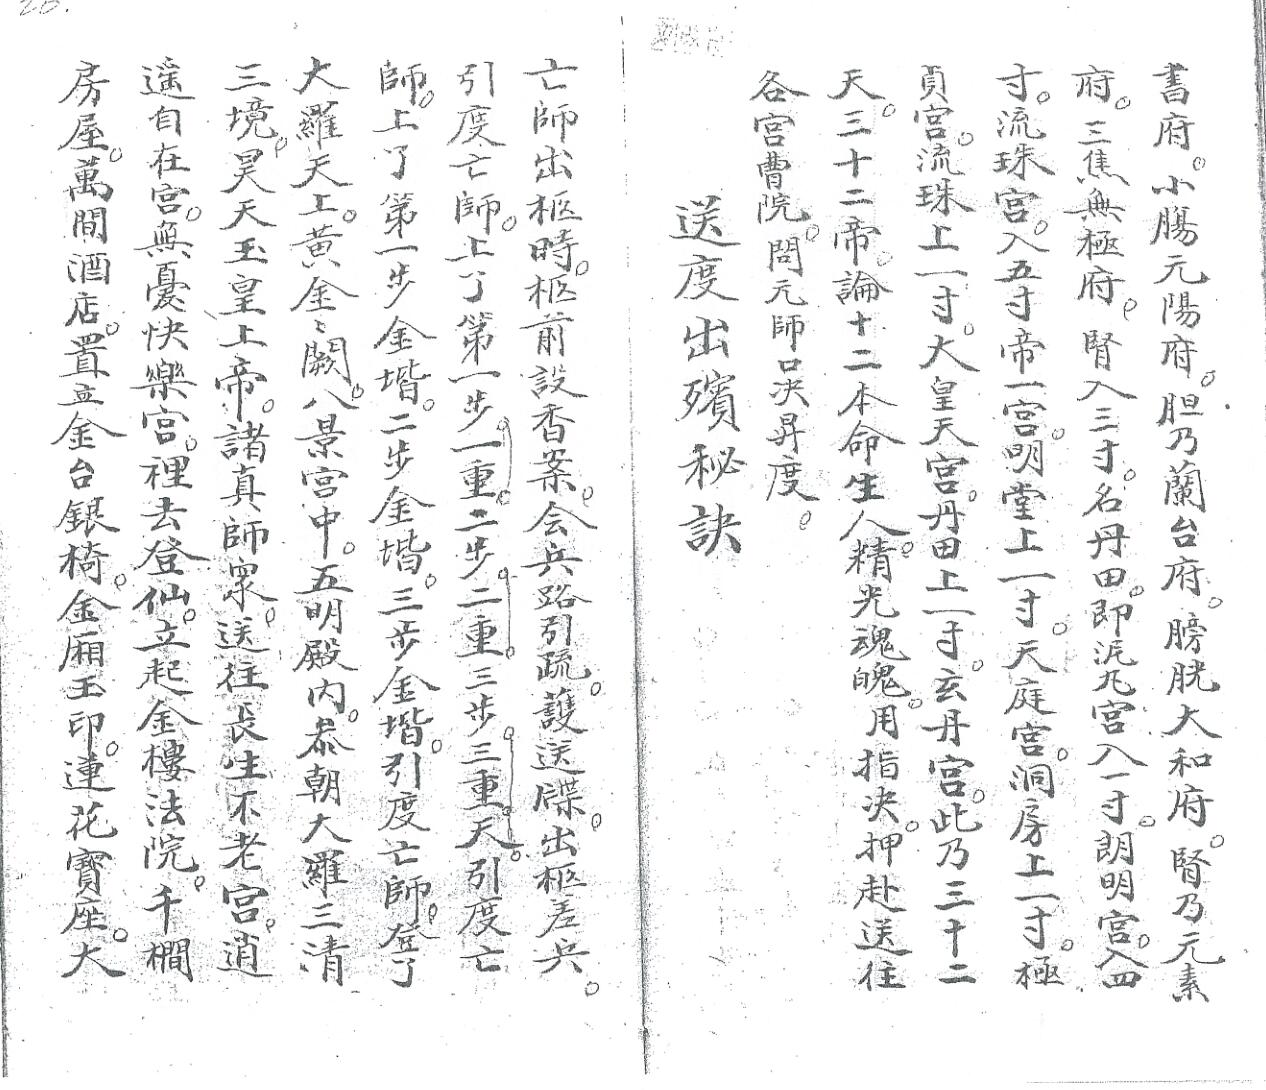 書府。小腸元陽府。胆乃蘭台府。膀胱大和府。腎乃元素
府。三焦無極府。腎入三寸。名丹田。即泥丸宮入一寸。朗明宮。入四
寸。流珠宮。入五寸帝一宮。明堂上一寸。天庭宮。洞房上一寸。極
貞宮。流珠上一寸。大皇天宮。丹田上一寸。玄丹宮。此乃三十二
天。三十二帝。論十二本命生人。精光魂魄。用指决。押赴送往
各宮曹院。問元師口决昇度。
送度出殯秘訣
亡師出柩時。柩前設香案。会兵路引疏。護送牒。出柩差兵。
引度亡師。上了第一步。一重。二步。二重。三步。三重天。引度亡
師。上了第一步金堦。二步金堦。三步金堦。引度亡師。登了
大羅天上。黃金〻闕。八景宮中。五明殿內。叅朝大羅三清
三境。昊天玉皇上帝。諸真師眾。送往長生不老宮。逍
遥自在宮。無憂快樂宮。裡去登仙。立起金樓法院。千櫊
房屋。萬間酒店。置立金台銀椅。金廂玉印。蓮花寶座。大
20.